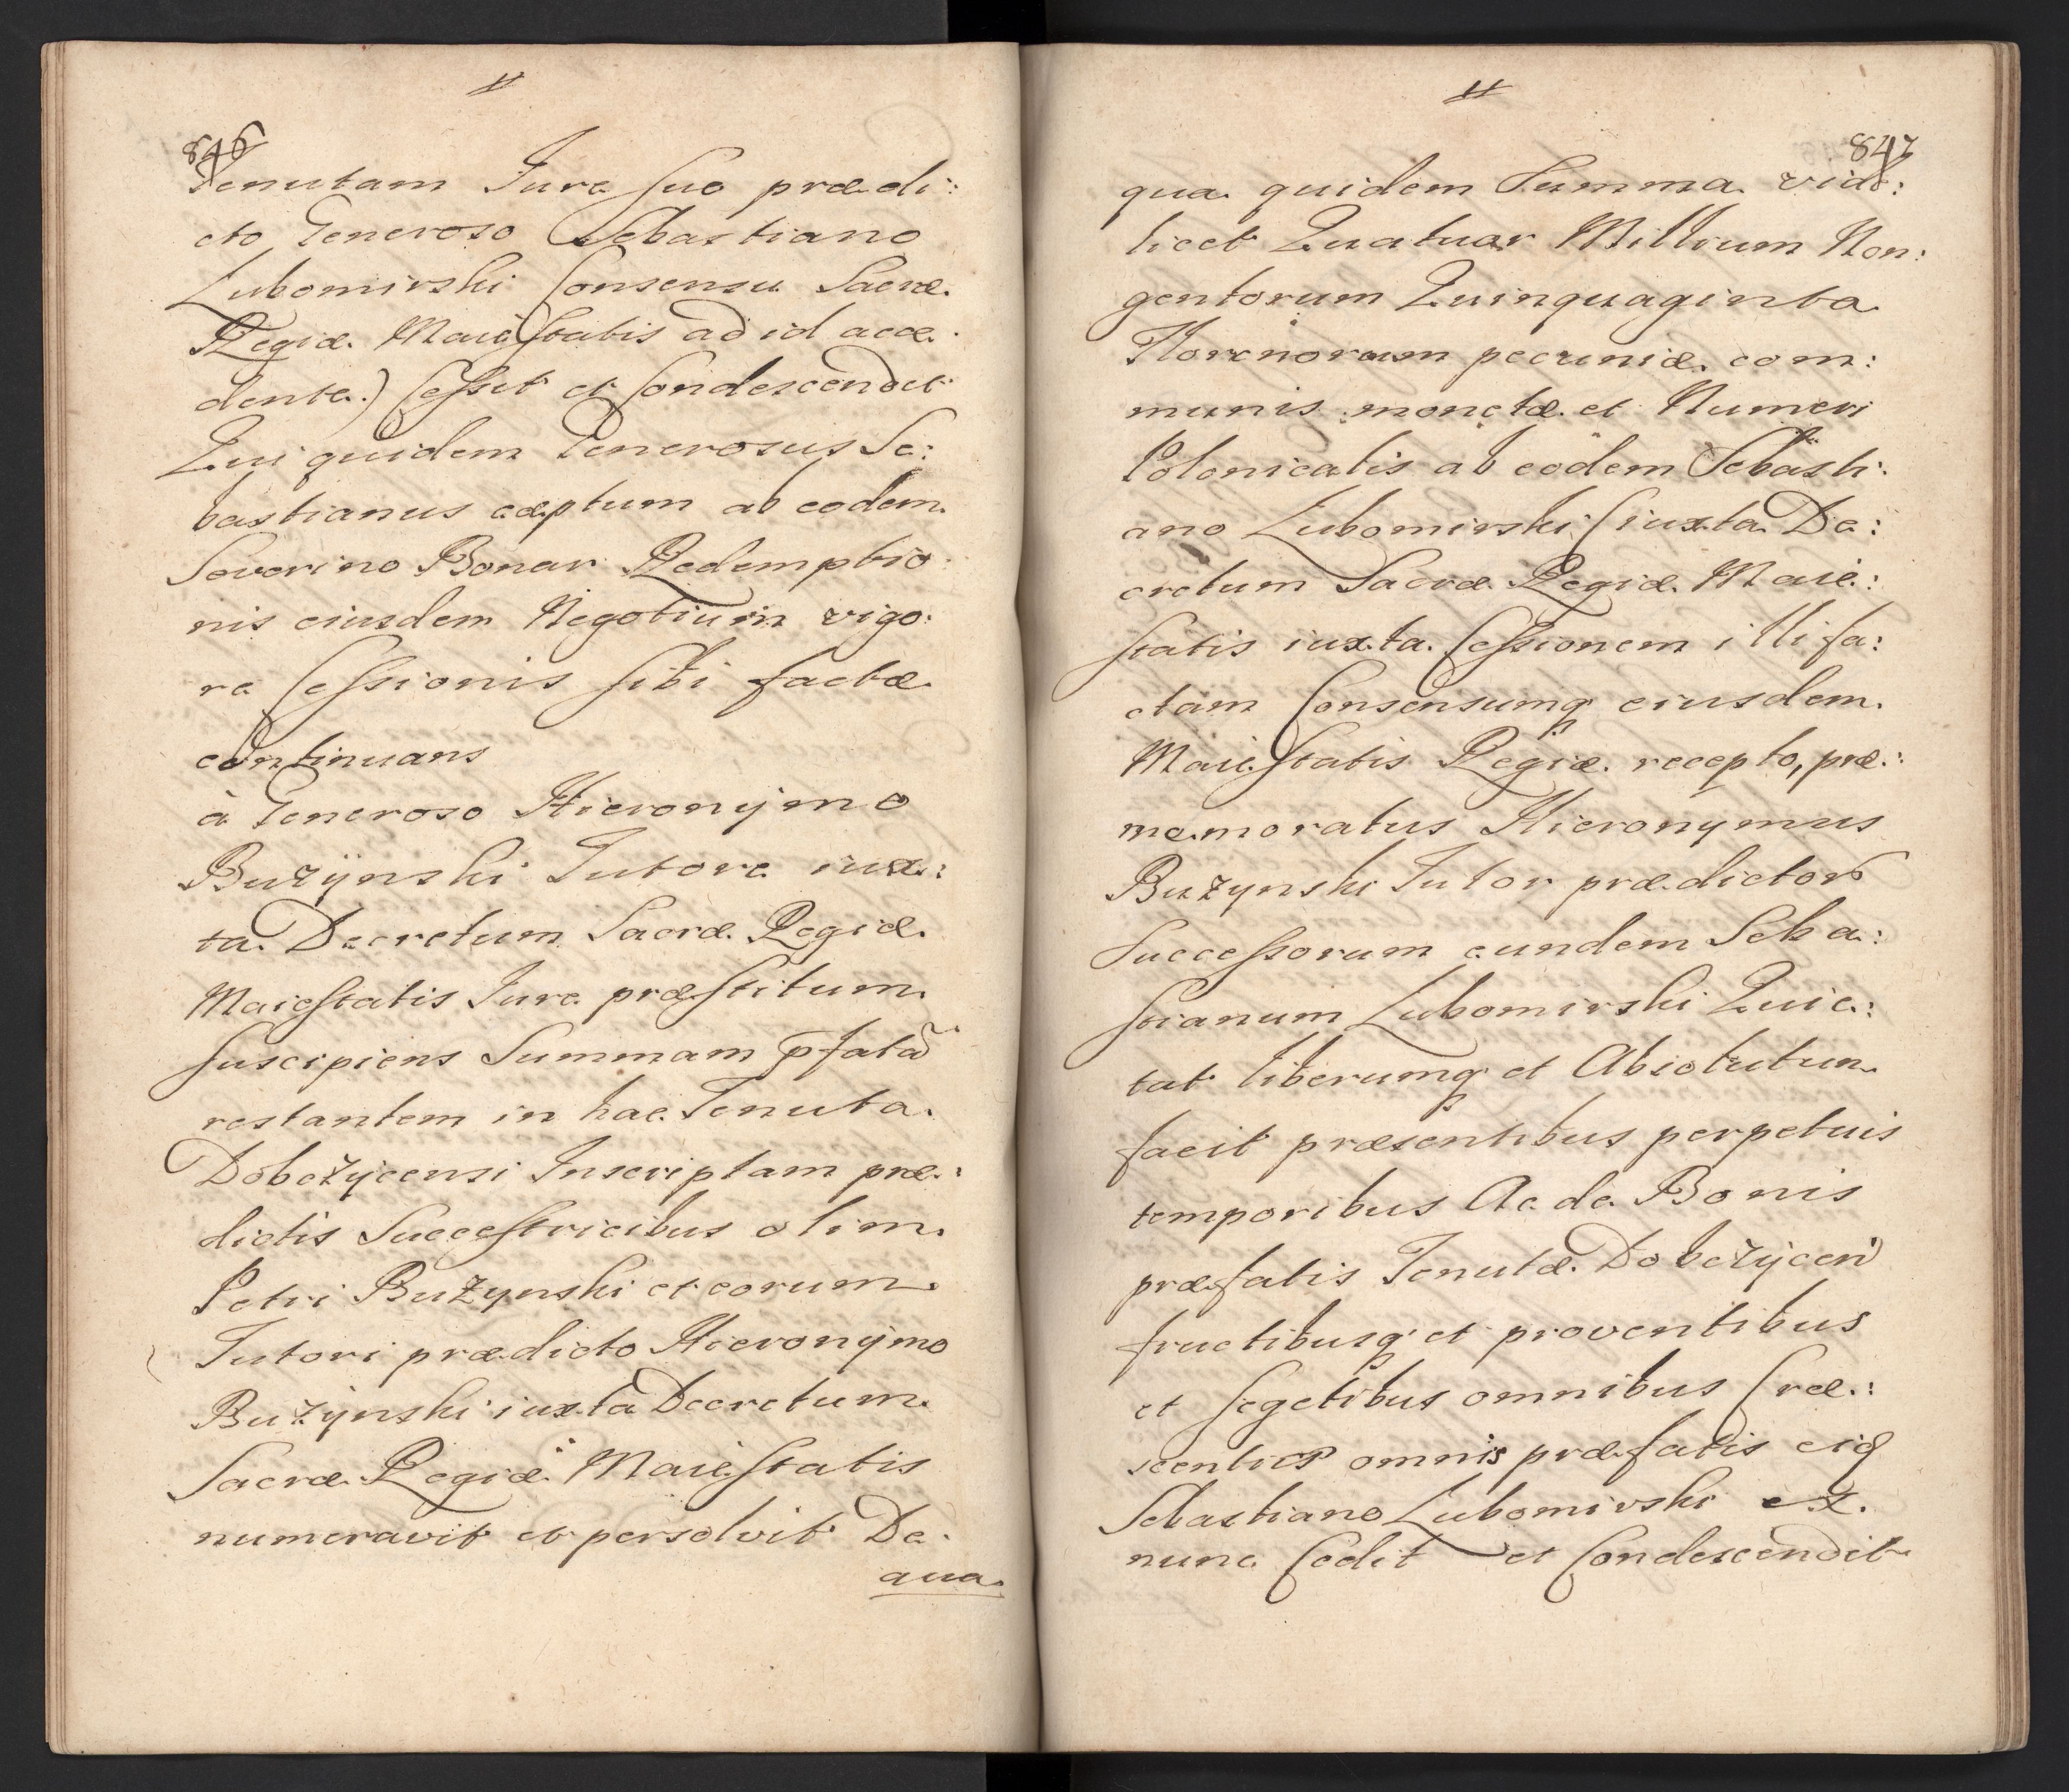 846
Tenutam Jure suo prædi:
cto Generoso Sebastiano
Lubomirski Consensu Sacræ
Regiæ Maiestatis ad id acce:
dente) Cessit et Condescendit
Qui quidem Generosus Se:
bastianus cæptum ab eodem
Severino Bonar Redemptio:
nis eiusdem Negotium vigo:
re Cessionis sibi factæ
continuans
à Generoso Hieronymo
Bużynski Tutore iux:
ta Decretum Sacræ Regiæ
Maiestatis Jure præstitum
suscipiens Summam pfatã
restantem in hac Tenuta
Dobczycensi Inscriptam præ:
dictis Successtricibus olim
Petri Bużynski et eorum
Tutori prædicto Hieronymo
Bużynski iuxta Decretum
Sacræ Regiæ Maiestatis
numeravit et persolvit De
qua
847
qua quidem Summa vide:
licet Quatuor Millium Non:
gentorum Quinquaginta
Florenorum pecuniæ com:
munis monetæ et Numeri
Polonicalis ab eodem Sebasti:
ano Lubomirski (iuxta De:
cretum Sacræ Regiæ Maie:
statis iuxta Cessionem illi fa:
ctam Consensumq eiusdem
Maiestatis Regiæ recepto, præ:
memoratus Hieronymus
Bużynski Tutor prædictor
Successorum eundem Seba:
stianum Lubomirski Quie:
tat liberumq et Absolutum
facit præsentibus perpetuis
temporibus Ac de Bonis
præfatis Tenutæ Dobczycen
fructibusq et proventibus
et segetibus omnibus Cre:
scentiis omnis præfatis eid
Sebastiano Lubomirski ex
nunc Cedit et Condescendit